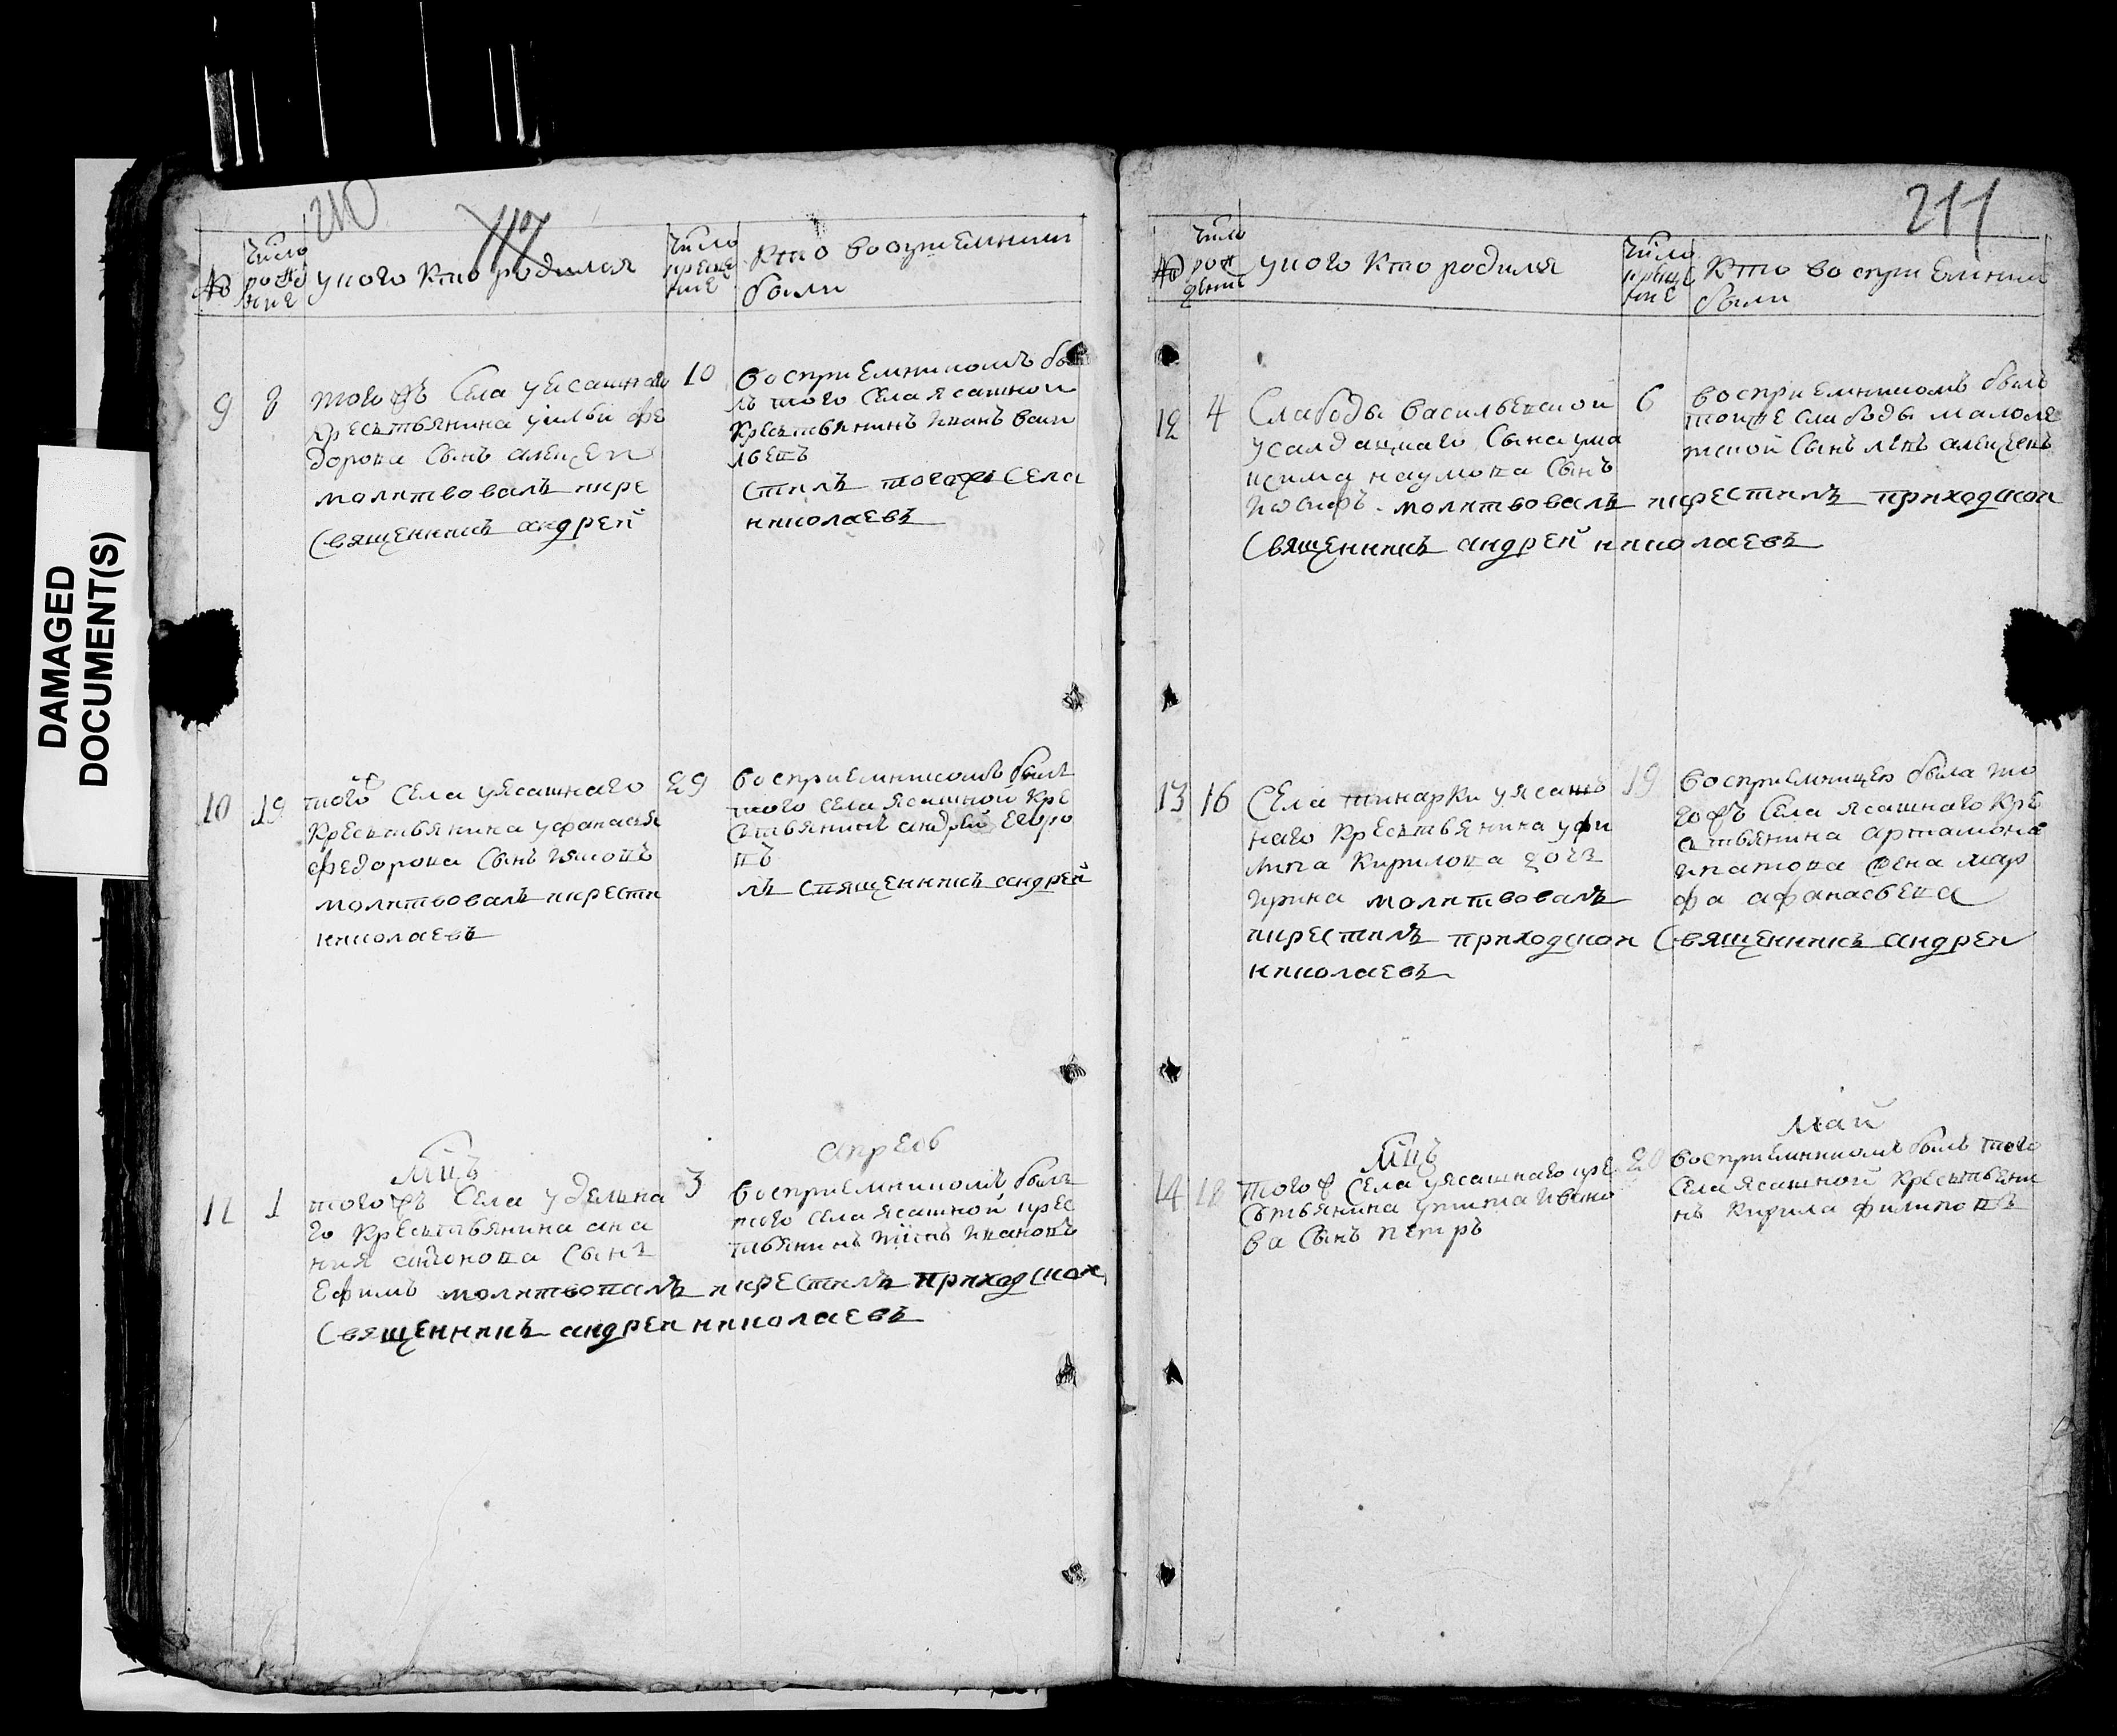 DAMAGED
DOCUMENT(S)
210
№
число рожде ние
у кого кто родился
число креще ние
кто восприемники
были
9
8
тогожъ села у ясашнаго
крестьянина у ильи фе
дорова сынъ алексеи
молитвовалъ икре
священникъ андрей
10
восприемникомъ бы
лъ того села ясашной
крестьянинъ иванъ васи
льевъ
стилъ тогожъ села
николаевъ
10
19
тогожъ села у ясашнаго
крестьянина у афанасья
федорова сынъ
молитвовалъ икрести
николаевъ
29
восприемникомъ былъ
того села ясашной кре
стьянинъ андрей егоро
въ
лъ священникъ андрей
мцъ
апрель
11
1
тогожъ села удельна
го крестьянина ана
ния антонова сынъ
ефимъ молитвовалъ икрестилъ приходской
священникъ андреи николаевъ
3
восприемникомъ былъ
того села ясашной крес
тьянинъ ивановъ
211
№
число рож дение
у кого кто родился
число креще ние
кто восприемники
были
12
4
Слабоды васильевской
у салдацкаго сына у ма
ксима наумова сынъ
иосифъ. молитвовалъ икрестилъ приходской
священникъ андрей николаевъ
6
восприемникомъ былъ
тойже слабоды малоле
тной сынъ алексеевъ
13
16
Села шинарки у ясаш
наго крестьянина у фи
липа кирилова дочь
ирина молитвовалъ
икрестилъ приходской священникъ андреи
николаевъ
19
восприемницею была то
гожъ села ясашнаго кре
стьянина артамона
ипатова жена мар
фа афанасьева
мцъ
май
14
18
тогож села у ясашнаго кре
стьянина у тита ивано
ва сынъ петръ
20
восприемникомъ былъ того
села ясашной крестьяни
нъ кирила филиповъ